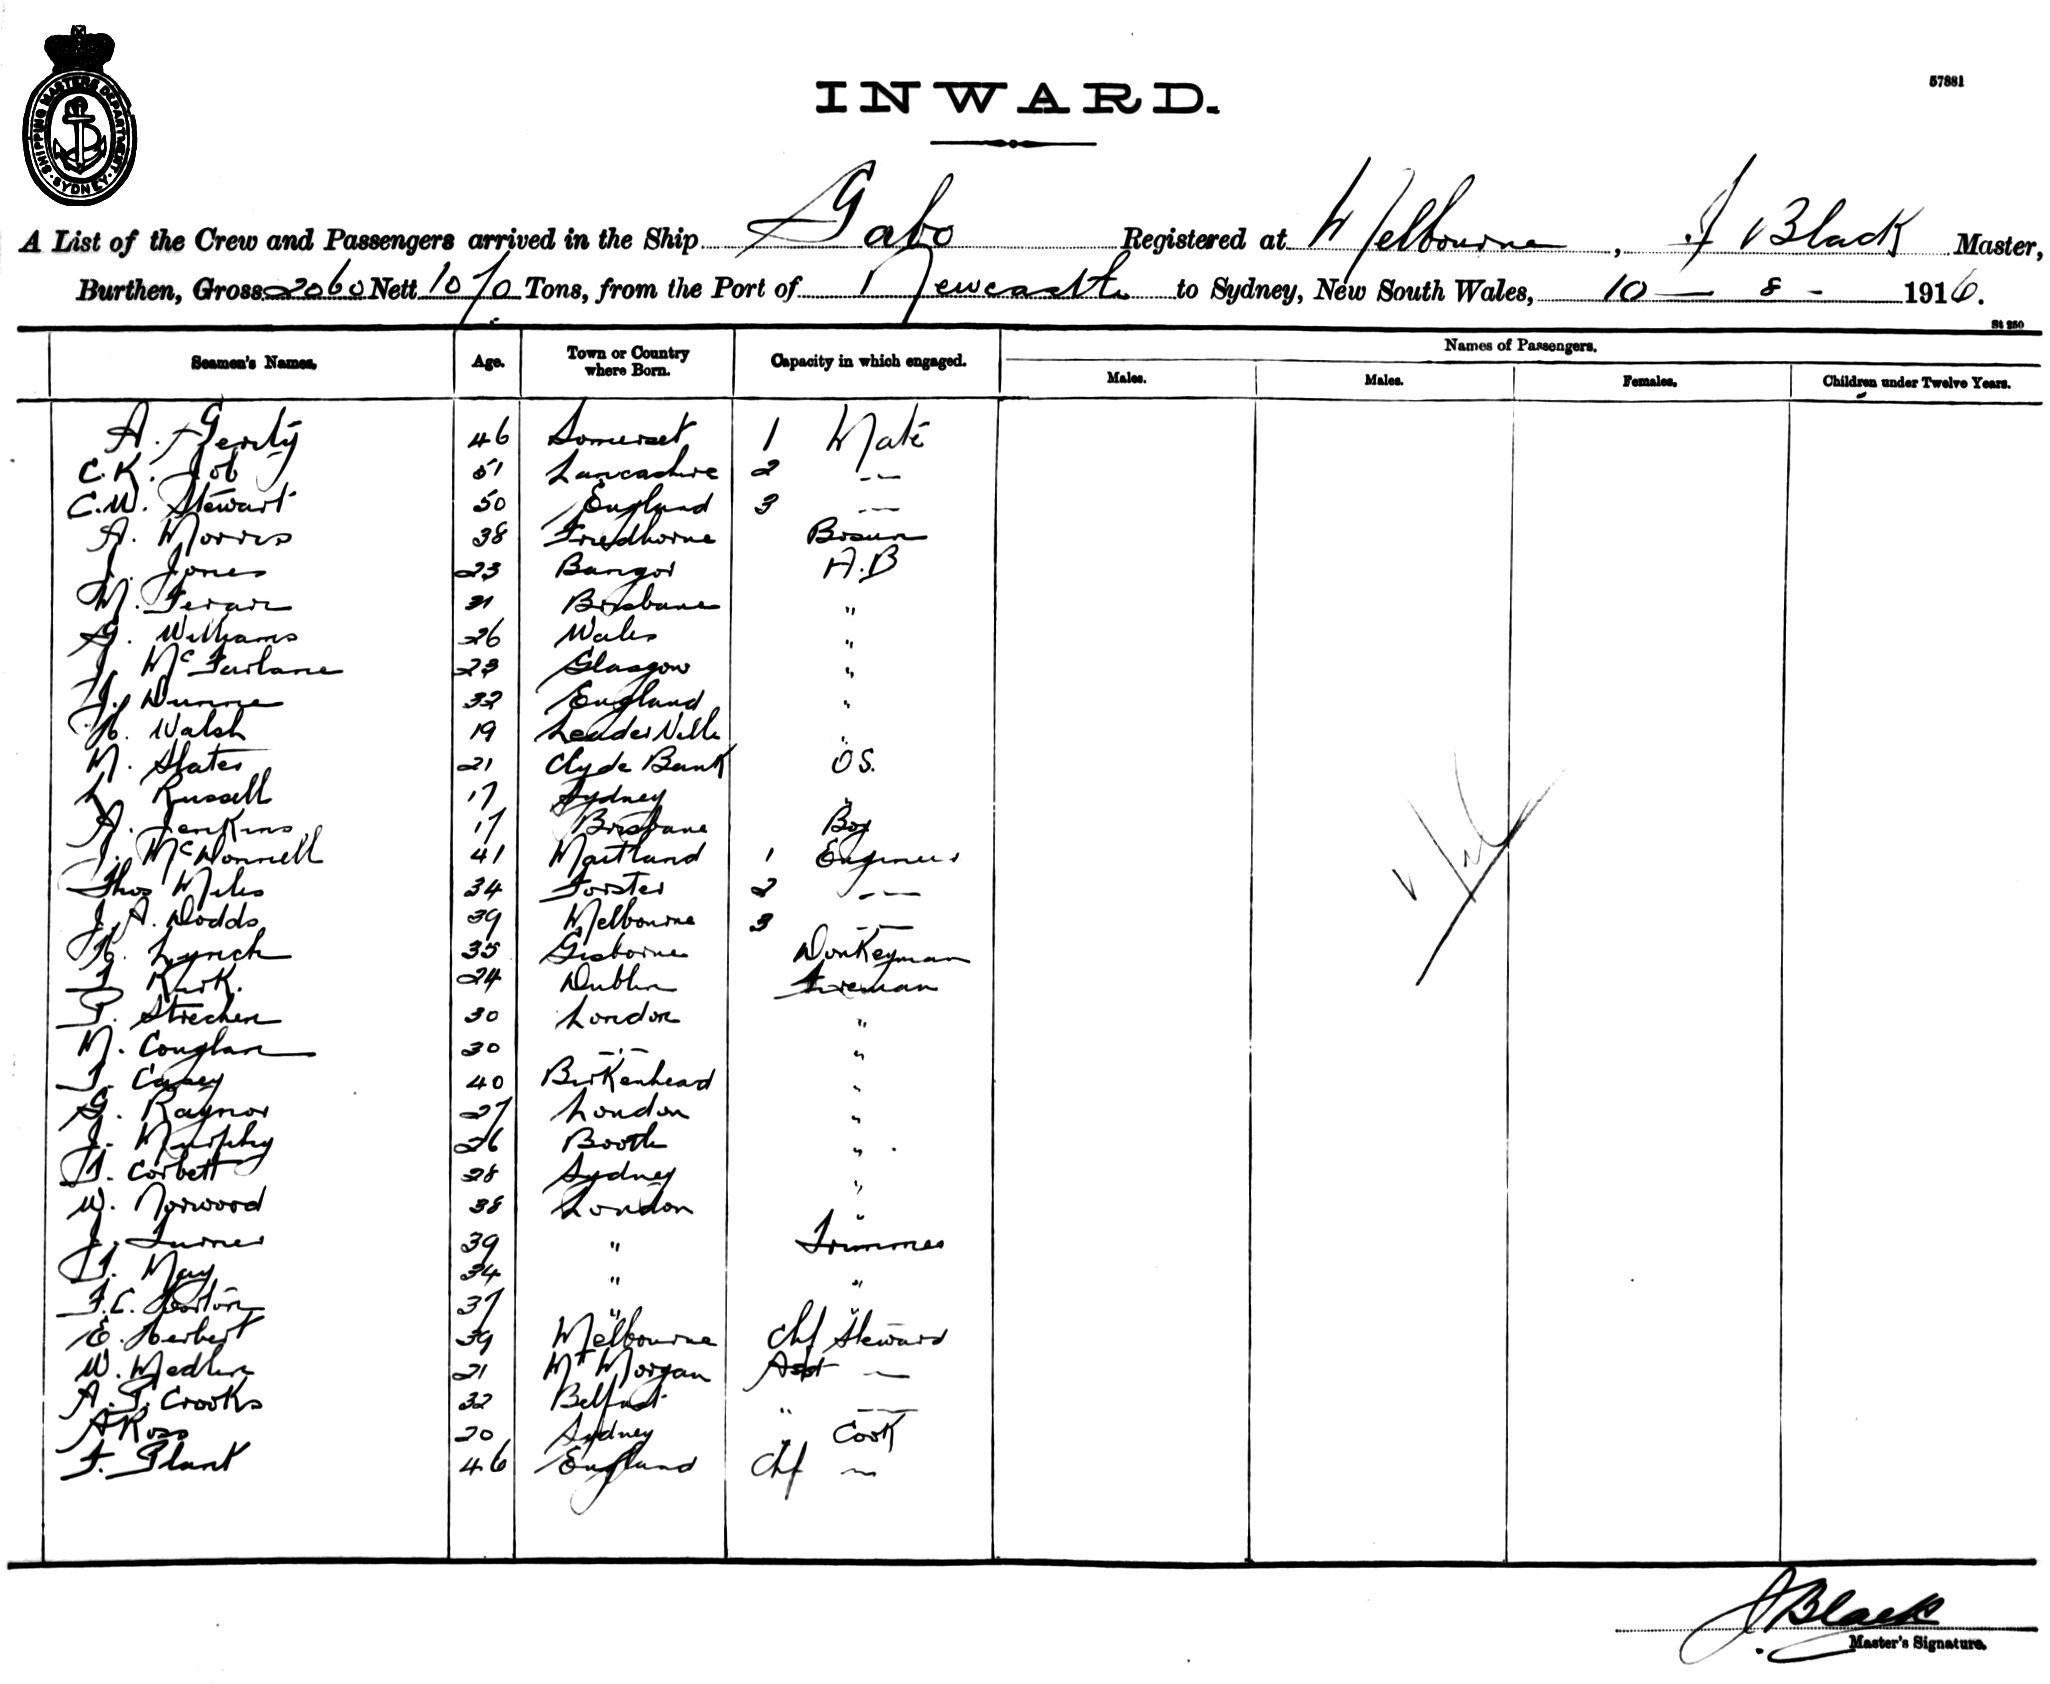 SHIPPING MASTERS DEPARTMENT · SYDNEY ·
57881
INWARD.
A List of the Crew and Passengers arrived in the Ship Gabo Registered at Melbourne, J Black Master,
Burthen, Gross 2060 Nett 1070 Tons, from the Port of Newcastle to Sydney, New South Wales, 10 — 8 - 1916.
St 250
Seamen's Names. Age. Town or Country where Born. Capacity in which engaged. Names of Passengers.
Males. Males. Females. Children under Twelve Years.
A. 46 Somerset 1 Mate
C. K. Job 51 Lancashire 2 -–-
C. W. Stewart 50 England 3 -–-
A. Morris 38 Bosun
J. Jones 23 Bangor A.B
M. 21 Brisbane "
G. Williams 26 Wales "
J. McFarlane 23 Glasgow "
J. Dunne 32 England "
H. Walsh 19 "
M. Slater 21 Clyde Bank O S.
L Russell 17 Sydney "
A. Jenkins 17 Brisbane Boy
J. McDonnell 41 Maitland 1 Engineer
Thos Miles 34 Forster 2 -–-
J. A. Dodds 39 Melbourne 3 -–-
H. Lynch 35 Gisborne Donkeyman
J Kirk. 24 Dublin Fireman
P. Strechen 30 London "
M. Couglan 30 -"- "
J. Casey 40 Birkenhead "
G. Raynor 27 London "
J. Murphy 26 Bootle "
D. Corbett 28 Sydney "
W. Norwood 38 London "
J. Turner 39 " Trimmer
D. May 34 " "
F. C. Horton 37 " "
E. Herbert 39 Melbourne Chf Steward
W. Medlin 21 Mt Morgan Asst —
A. P. Crooks 32 Belfast " —
A Ross 20 Sydney " Cook
F. Plant 46 England Chf —
Nil
J Black
Master's Signature.